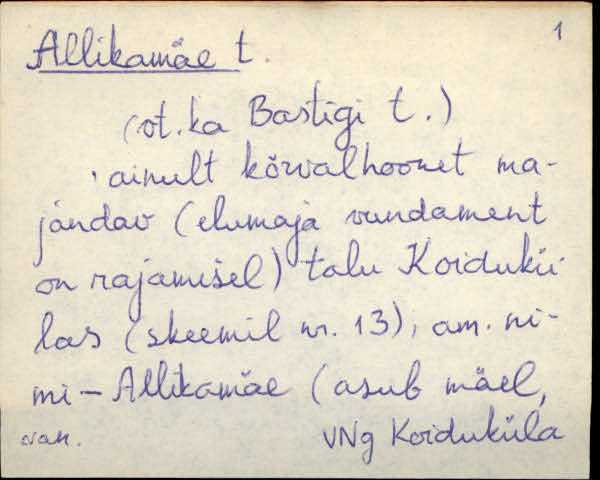 1
Allikamäe t.
(vt. ka Bastigi t.)
ainult kõrvalhoonet ma-
jandav (elumaja vundament
on rajamisel) talu Koidukü-
las (skeemil nr. 13), am. ni-
mi - Allikamäe (asub mäel,
VNg Koiduküla